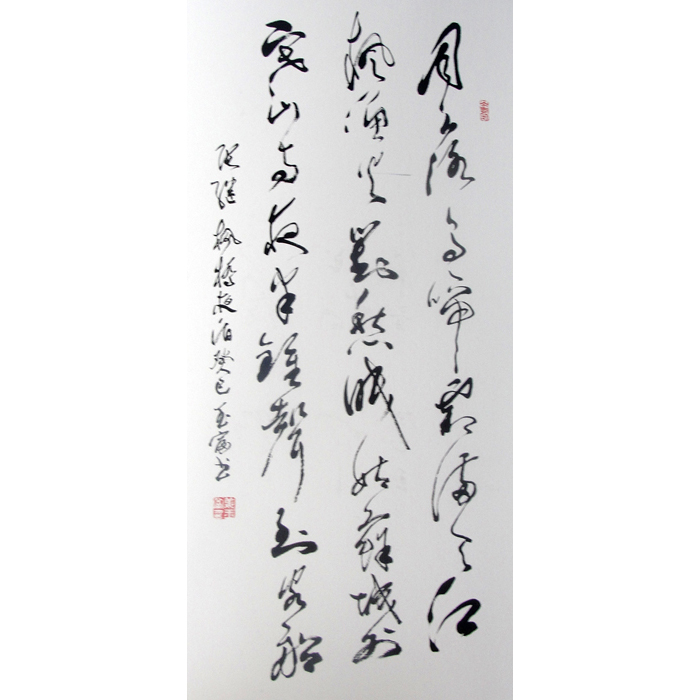 月落烏啼霜滿天江
楓漁火對愁眠姑蘇城外
寒山寺夜半鐘聲到客船
張繼楓橋夜泊癸巳玉富书